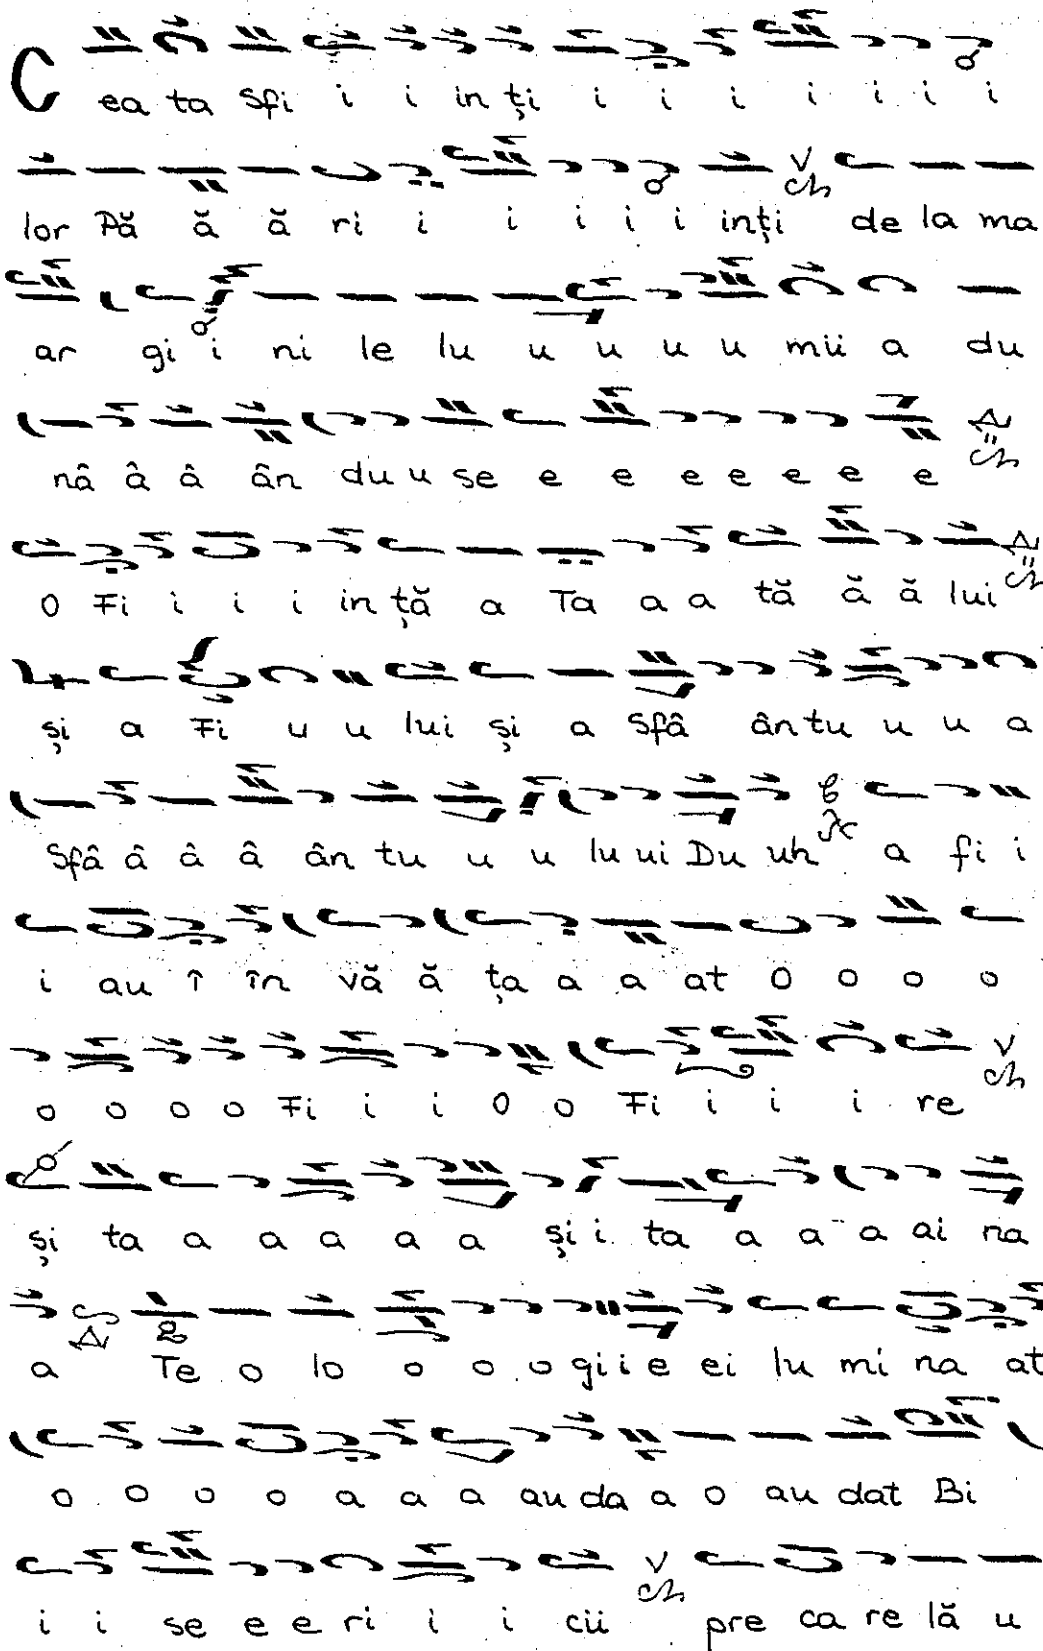 C ea ta Sfi i i in ți i i i i i i i
lor Pă ă ă ri i i i i i inți de la ma
ar gi i ni le lu u u u u mii a du
nâ â â ân du u se e e e e e e
O Fi i i i in ță a Ta a a tă ă ă lui
și a Fi u u lui și a Sfâ ân tu u u a
Sfâ â â â ân tu u u lu ui Du uh a fi i
i au î în vă ă ța a a at O o o o
o o o o Fi i i O o Fi i i i re
și ta a a a a a și i ta a a a ai na
a Te o lo o o o gi i e ei lu mi na at
o o o o a a a au da a o au dat Bi
i i se e e ri i i cii pre ca re lă u